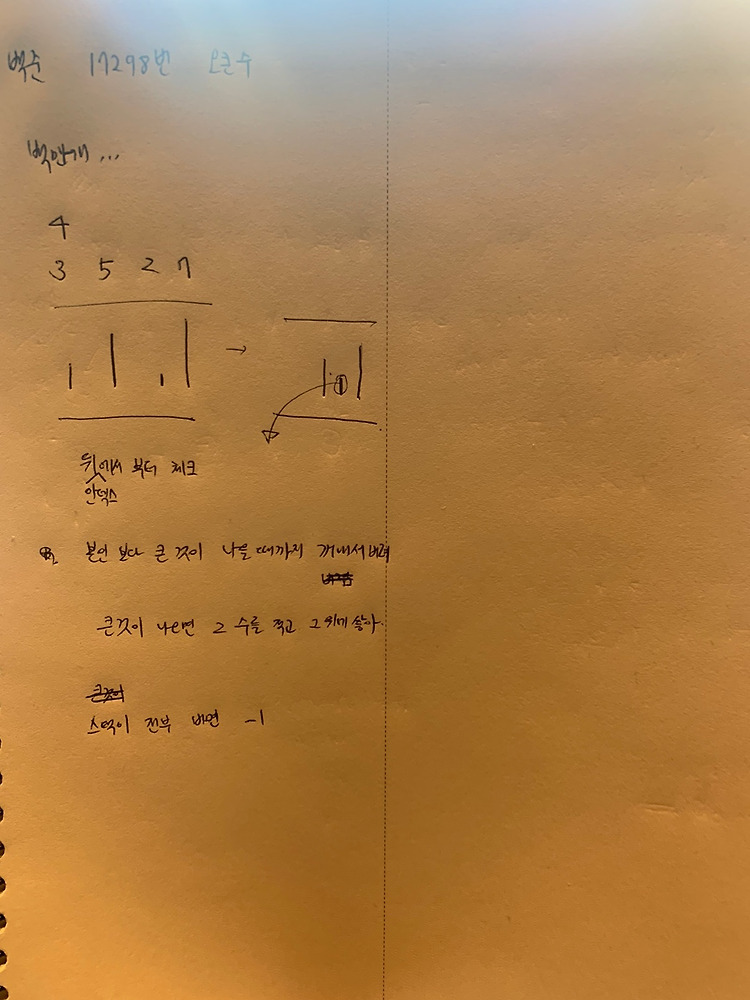 백준 17298번 오큰수
백만개 ...
4
3 5 2 7
뒷에서 부터 체크
인덱스
본인 보다 큰 것이 나올 때까지 꺼내서 버려
큰것이 나오면 그 수를 적고 그 위에 쌓아.
큰것이
스택이 전부 비면 -1